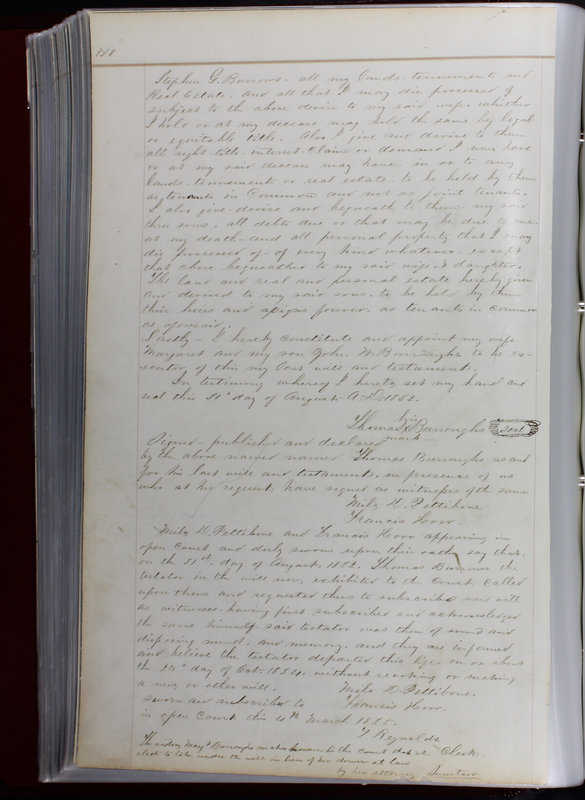 188
Stephen G. Burrows - all my lands tennements and
Real Estate, and all that I may die possessed of
subject to the above devise to my said wife, whether
I hold or at my decease may hold the same by legal
or equitable title. Also I give and devise to them
all right title interest claim or demand I now have
or at my said decease may have, in or to any
lands - tennements or real estate, to be held by them
as tenants in Common and not as joint tenants.
I also give - devise and bequeath to them - my said
three sons, all debts due or that may be due to me,
at my death - and all personal property that I may
die possessed of - of every kind whatever, except
that above bequeathed to my said wife & daughter.
The land and real and personal estate hereby given
and devised to my said sons, to be held by them
their heirs and assigns forever, as tenants in common
as aforesaid.
Lastly - I hereby constitute and appoint my wife
Margaret and my son John W. Burroughs to be ex-
ecutors of this my last will and testament.
In testimony whereof I hereto set my hand and
seal this 31st day of August A.D. 1852.
his
Thomas X Burroughs seal
mark
Signed - published and declared
by the above named named Thomas Burroughs as and
for his last will and testament, in presence of us
who at his request have signed as witnesses of the same
Milo H. Pettibone
Francis Horr.
Milo H. Pettibone and Francis Horr appearing in
open Court and duly sworn upon their oath, say that,
on the 31st day of August 1852. Thomas Burrows the
testator in the will now, exhibited to the Court, called
upon them and requested them to subscribe said will
as witnesses having first subscribed and acknowledged
the same himself said testator was then of sound and
disposing mind, and memory, and they are informed
and believe the testator departed this life on or about
the 24th day of Oct. 1854, without revoking or making
a new or other will. Milo H. Pettibone,
sworn and subscribed to Francis Horr.
in open Court this 10th March 1855.
T Reynolds
Clerk
The widow Marg't Burroughs makes known to the court that she
elects to take under the will in lieu of her dower at law
by her attorney Sweetser